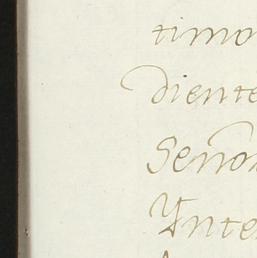 timo
diente
Seño
Ynte